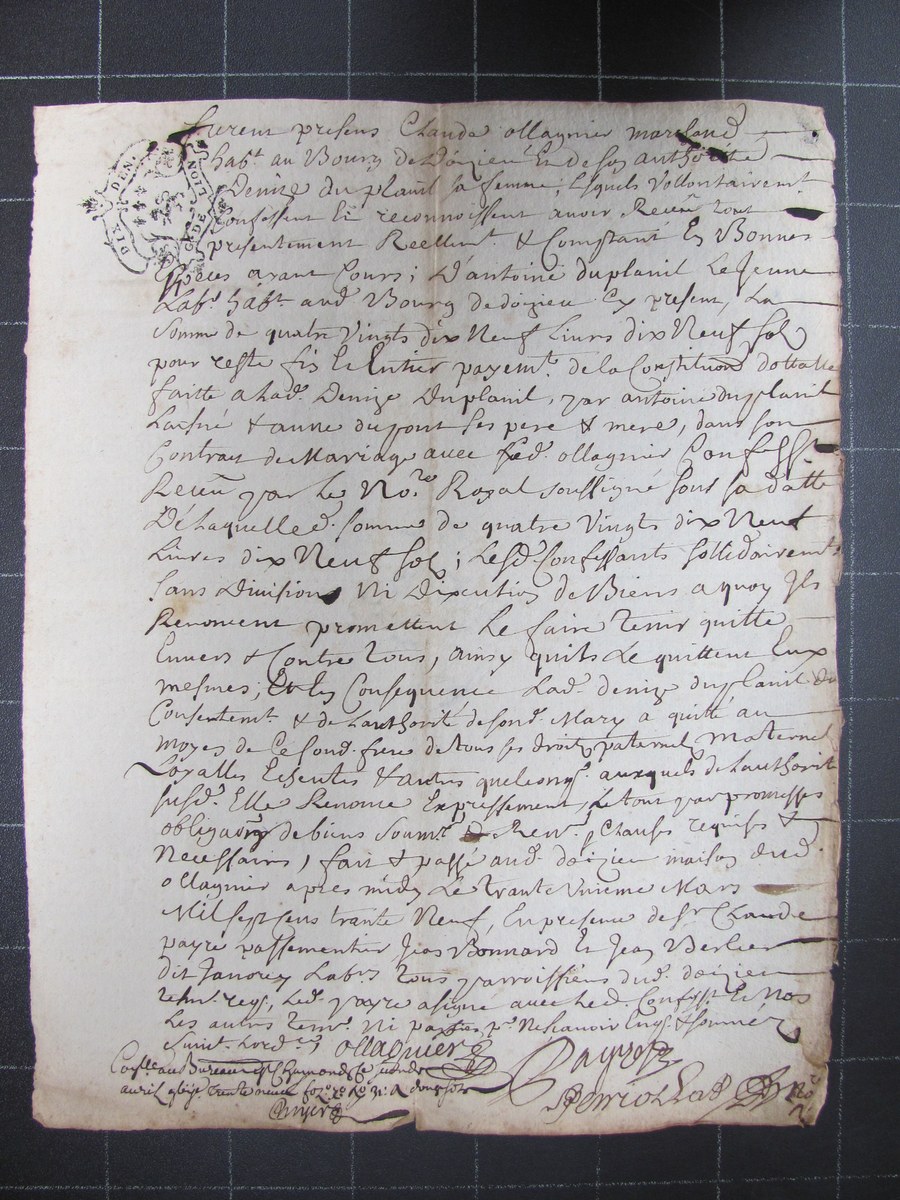 DIX DEN. G. DE LION
furent presens Claude ollagnier marchand
habt. au Bourg de doizieu Et de son authorité
Denize du planil sa femme; lesquels vollontairemt
Confessent Et reconnoissent avoir Receu tout
presentement Reellemt. & Comptant En Bonnes
Especes ayant Cours; d'antoine du planil Le Jeune
Labr. habt. aud. Bourg de doizieu Cy present, La
Somme de quatre vingts dix Neuf Livres dix Neuf sol
pour reste fin Et Entier payemt. de la Constitution dottalle
faitte a Lad. Denize Duplanil, par antoine du planil
Laisné & anne du pont ses pere & mere, dans son
Contrat de Mariage avec Led. ollagnier Confesst.
Receu par Le Nore. Royal soussigné sous sa datte
De Laquelle d. somme de quatre vingts dix Neuf
Livres dix Neuf sol; Lesd. Confessants sollidairemt
sans Division Ni Discution de Biens a quoy Ils
Renoncent promettent Le faire tenir quitte
Envers & Contre tous, ainsy quils Le quittent Eux
mesmes; Et En Consequence Lad. denize du planil du
Consentemt. & de Lauthorité de sond. Mary a quitté au
moyen de Ce sond. frere de tous ses droits paternel maternel
Loyalles Echeutes & autres quelconqs. auxquels de Lauthorité
susd. Elle Renonce Expressement, Le tout par promesses
obligaons de biens soumt. Renont. Clauses requises &
Necessaires, fait & passé aud. doizieu maison dud.
ollagnier apres midy Le trante unieme Mars
Mil sept cens trante Neuf, En presence de sr. Claude
payre passementier Jean Bonnard Et Jean Berlier
dit Janorey Labrs. tous parroissiens dud. doizieu
temt. reqs, Led. payre a signé avec Led. Confesst. Et Non
Les autres temt. Ni parties pr. Ne scavoir Enqs. & sommés
suivt. Lordce; ollagnier
Payre
Conlle au Bureau de St Chamond Le
avril trente neuf fo. Ro. 31. R douze sols